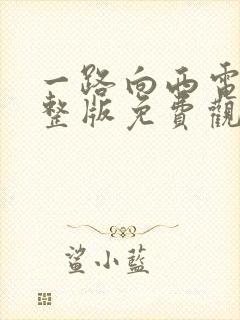 一路向西電
整版免費觀
鯊小藍